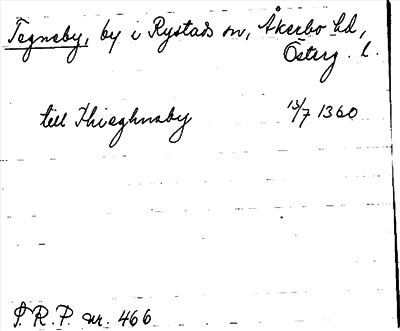 Tegneby, by i Rystads sn, Åkerbo hd,
Österg. l.
till Thiæghnaby 13/7 1360
S.R.P. nr. 466